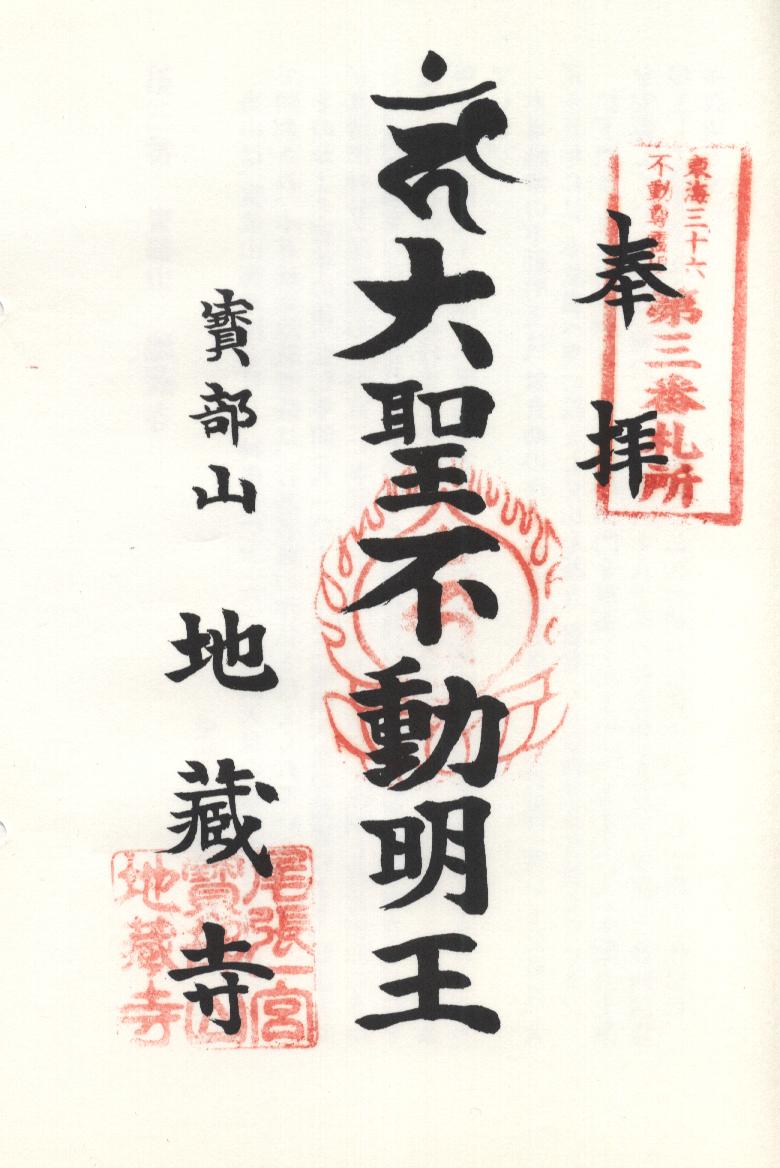 東海三十六
不動尊霊場
第三番札所
奉拝
大聖不動明王
寳部山
地蔵寺
尾張一宮
寳部山
地蔵寺